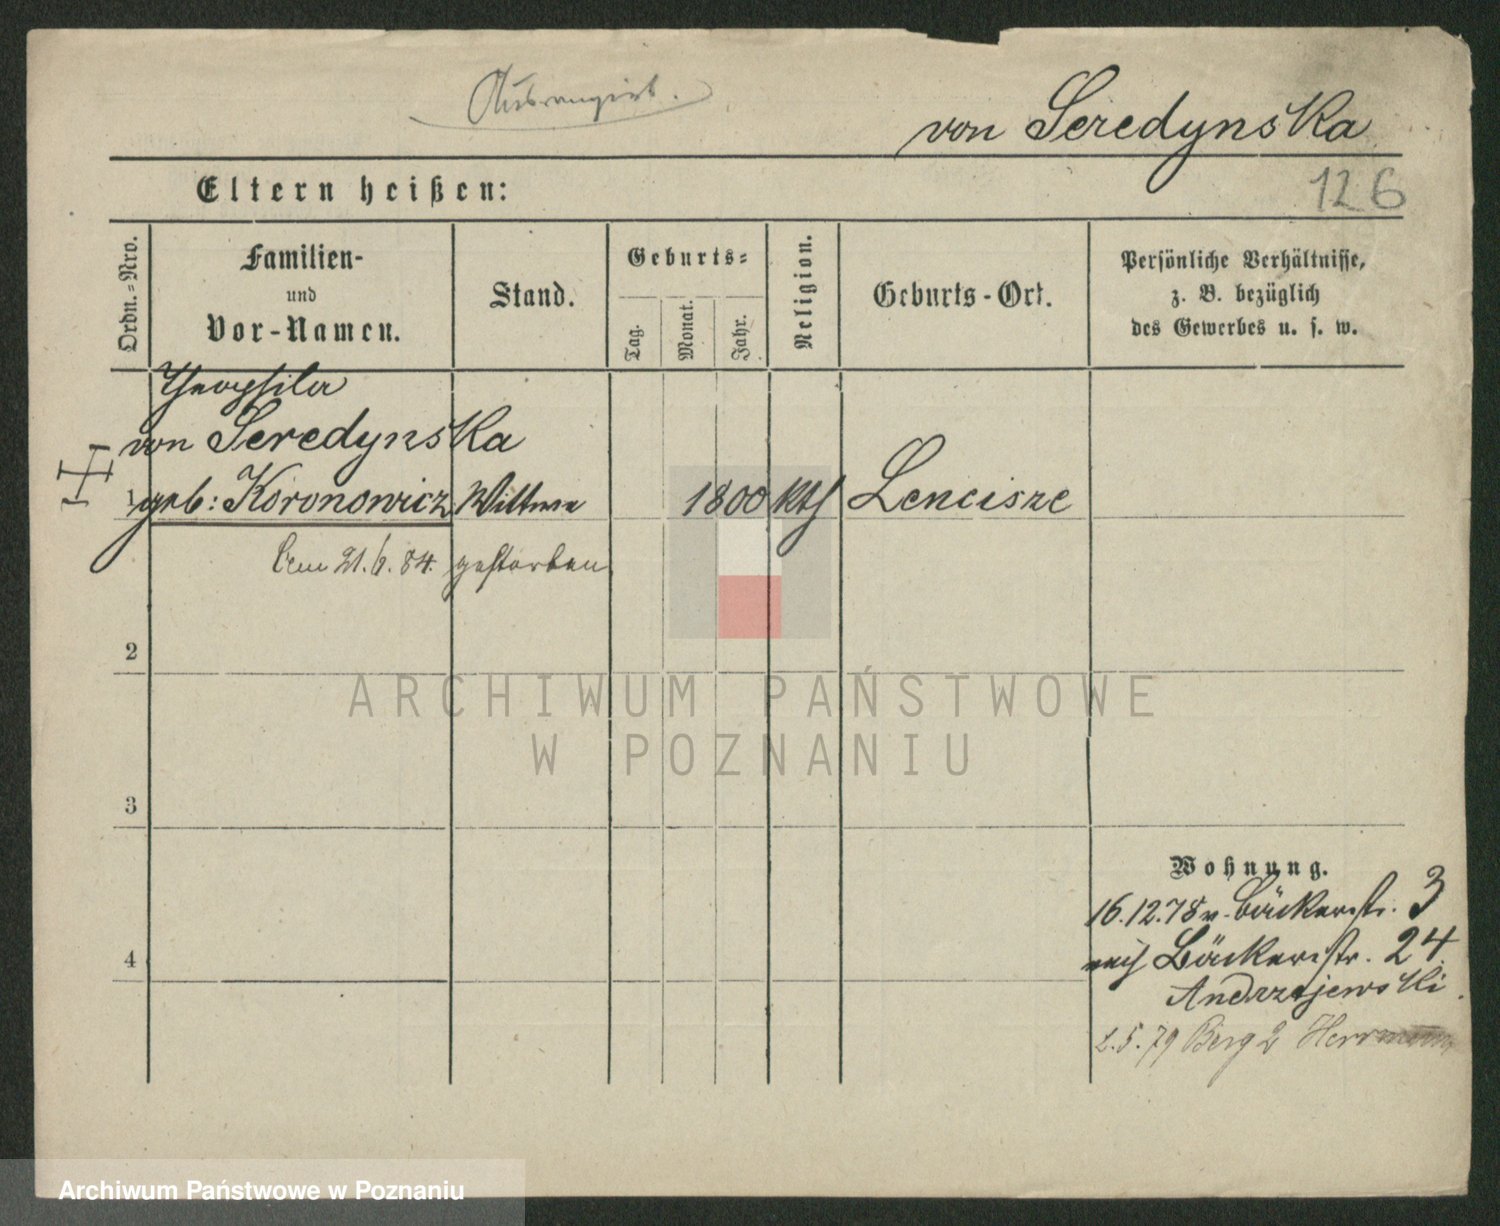 Ausrangirt.
von Seredynska
Eltern heißen:
126
Ordn.=Nro.
Familien-
und
Vor-Namen.
Stand.
Geburts=
Tag.
Monat.
Jahr.
Religion.
Geburts-Ort.
Persönliche Verhältnisse,
z. B. bezüglich
des Gewerbes u. s. w.
Theophila
von Seredynska
1 geb: Koronowicz Wittwe 1800 kth Lencisze
21.6.84. gestorben
2
ARCHIWUM PAŃSTWOWE
W POZNANIU
3
Wohnung.
16.12.78 v. Bäckerstr. 3
nach Bäckerstr. 24
4
Andrzejewski.
2.5.79 Berg 2 Herrmann
Archiwum Państwowe w Poznaniu